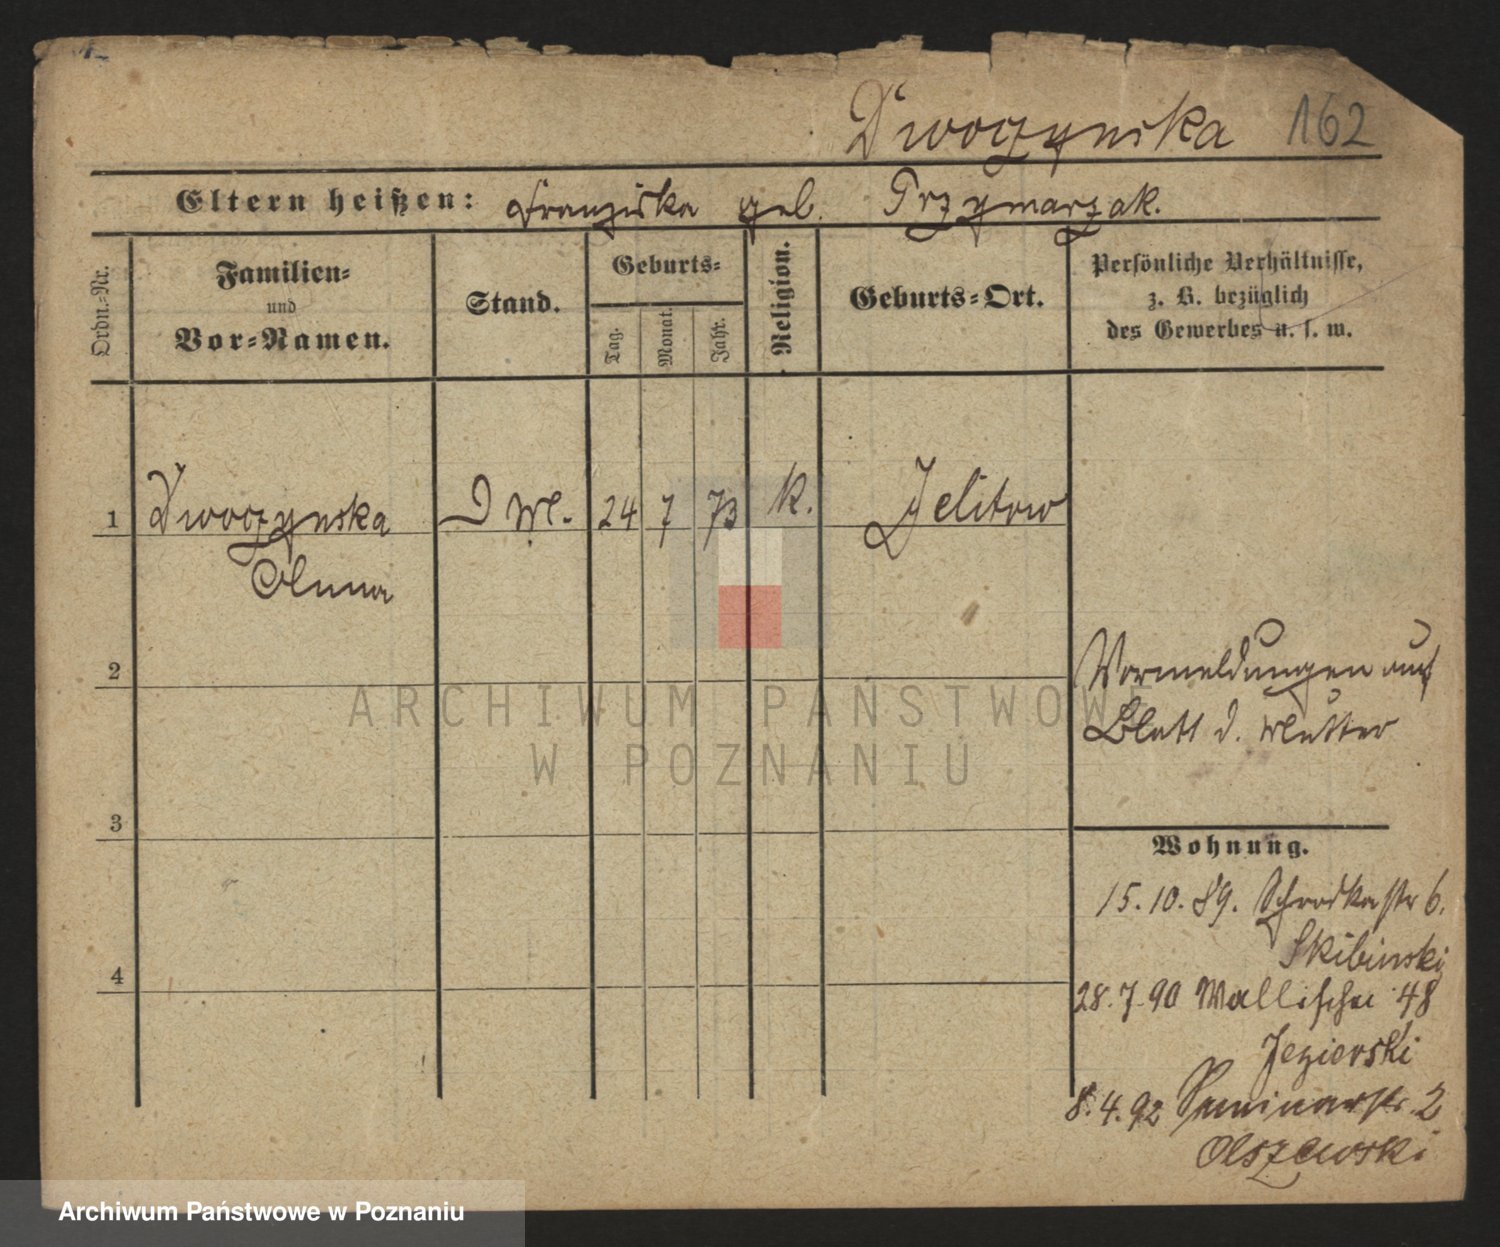 Dworzynska 162
Eltern heißen: Franziska geb. Przymarzak.
Ordn.-Nr.
Familien-
und
Vor-Namen.
Stand.
Geburts-
Tag.
Monat.
Jahr.
Religion.
Geburts-Ort.
Persönliche Verhältnisse,
z. B. bezüglich
des Gewerbes u. s. w.
1 Dworzynska D Ml. 24 7 73 K. Jelitow
Anna
2
3
4
Vormeldungen auf
Blatt d. Mutter
Wohnung.
15.10.89. Schrodkastr 6.
Skibinski
28.7.90 Wallischei 48
Jezierski
8.4.92 Seminarstr. 2
Olszewski
ARCHIWUM PAŃSTWOWE
W POZNANIU
Archiwum Państwowe w Poznaniu